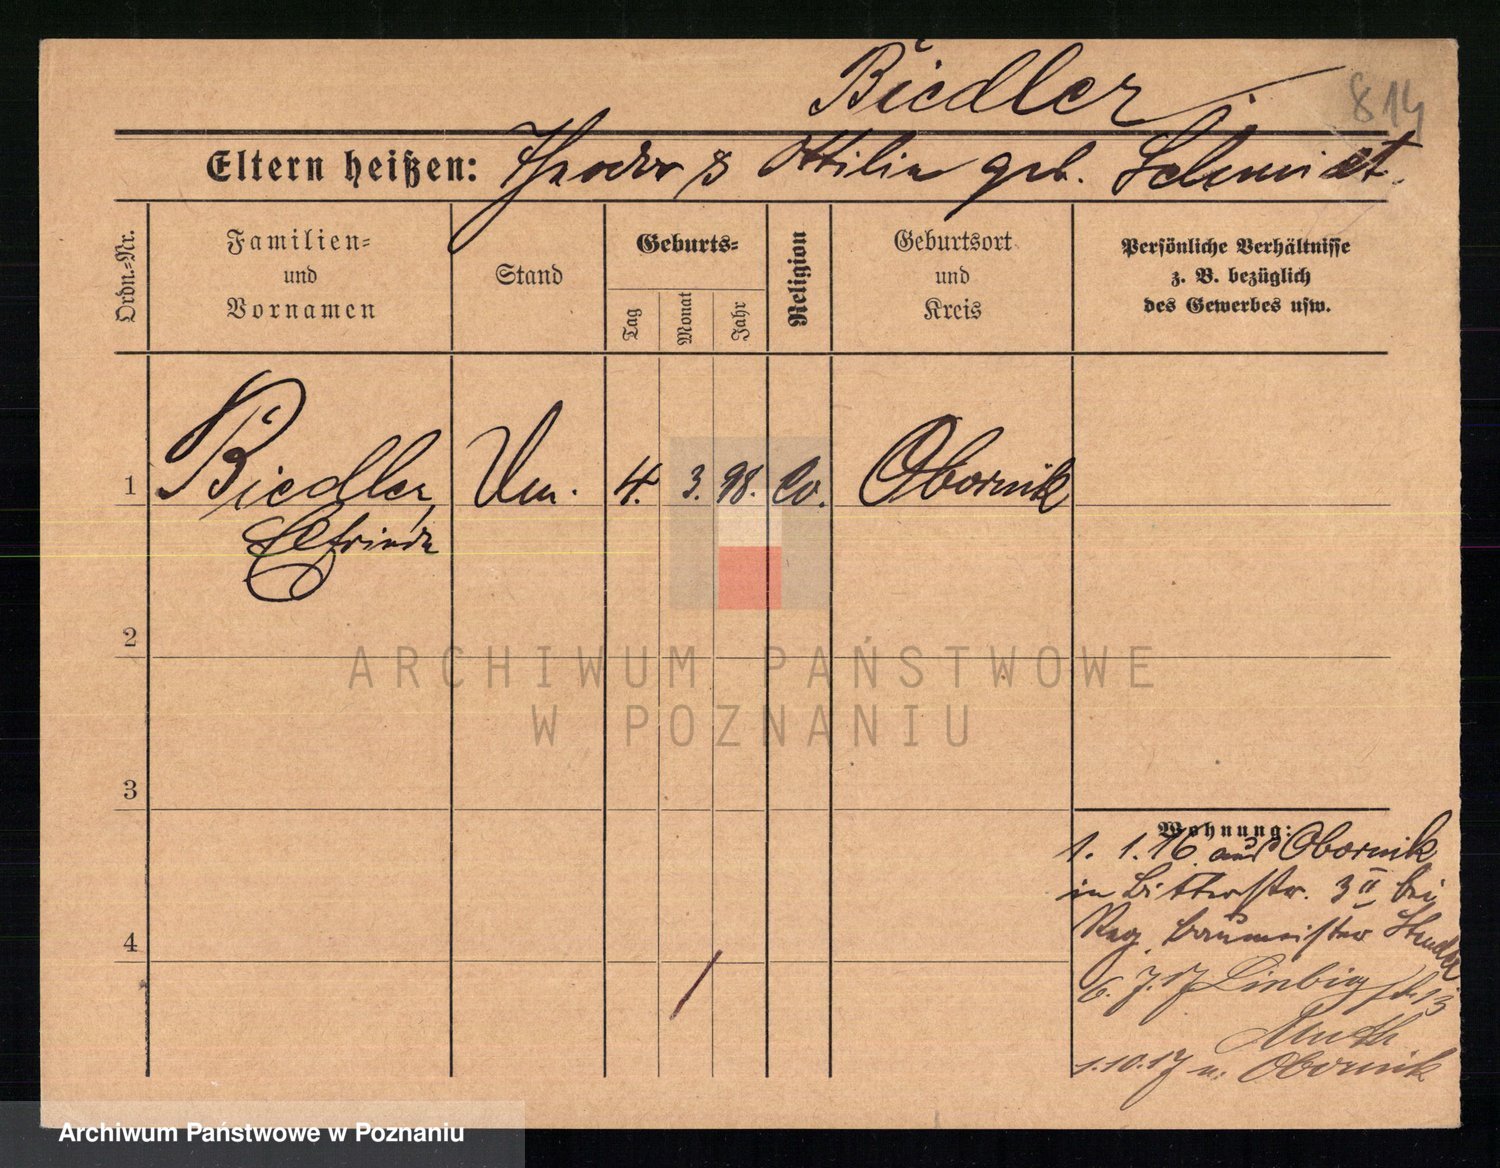 Biedler
814
Eltern heißen: Theodor & Ottilie geb. Schmidt.
Ordn.-Nr.
Familien-
und
Vornamen
Stand
Geburts-
Tag
Monat
Jahr
Religion
Geburtsort
und
Kreis
Persönliche Verhältnisse
z. B. bezüglich
des Gewerbes usw.
1
Biedler,
Elfriede
4. 3. 98. Ev. Obornik
2
3
4
Wohnung:
1. 1. 16. aus Obornik
in Bitterstr. 3 II bei
Reg. baumeister
6. 7. 17 13
Muth
1.10.17 n. Obornik
ARCHIWUM PAŃSTWOWE
W POZNANIU
Archiwum Państwowe w Poznaniu